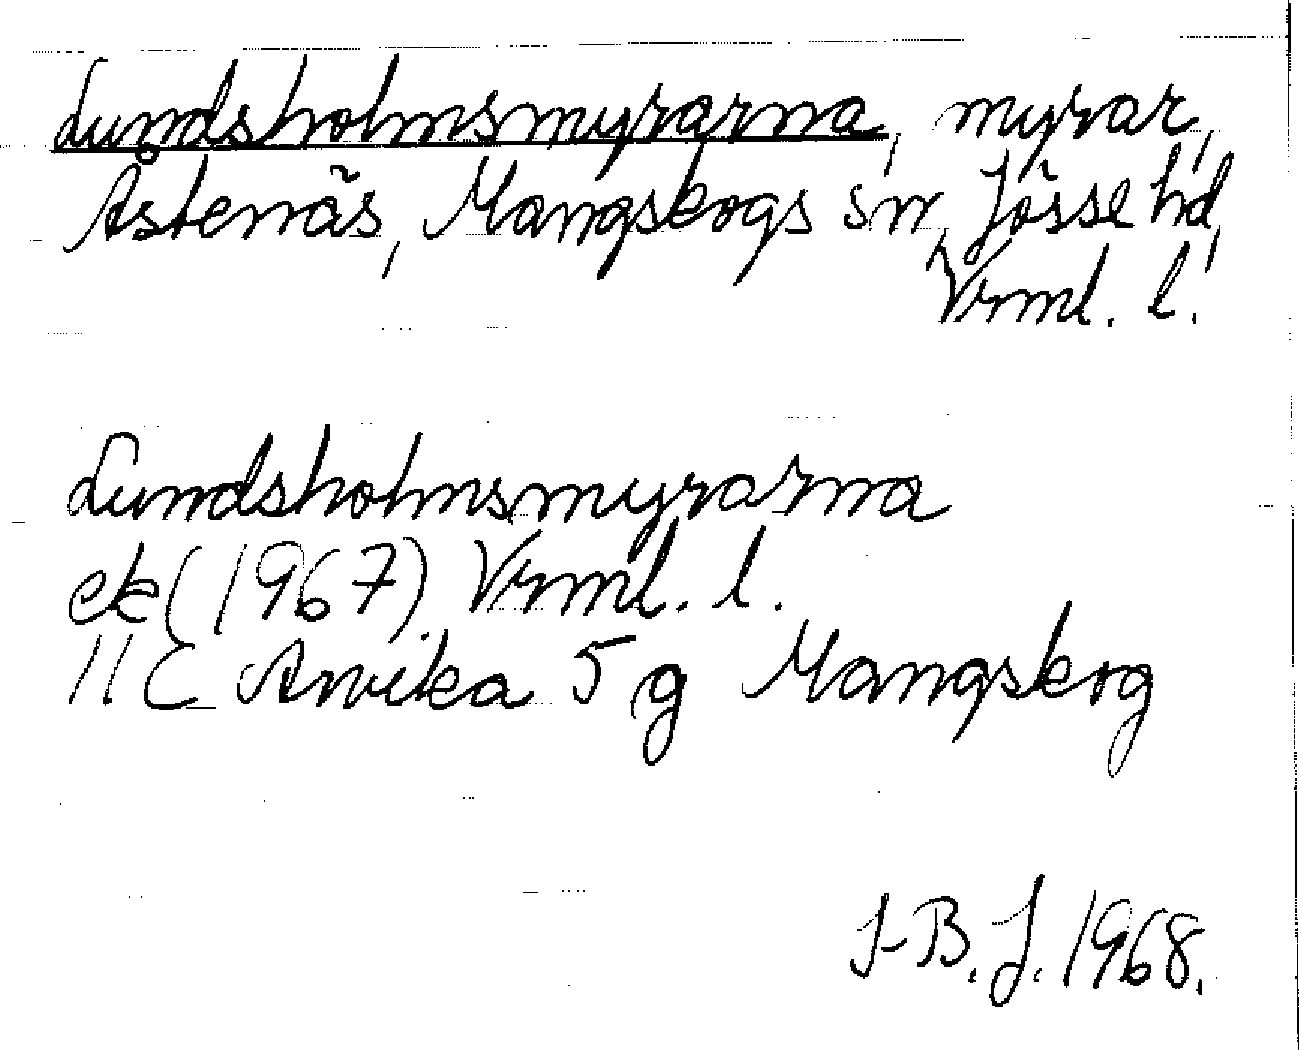 Lundsholmsmyrarna, myrar,
Åstenäs, Mangskogs sn, Jösse hd,
Vrml. l.
Lundsholmsmyrarna
ek (1967). Vrml. l.
11 C Arvika 5 g Mangskog
I-B. J. 1968.